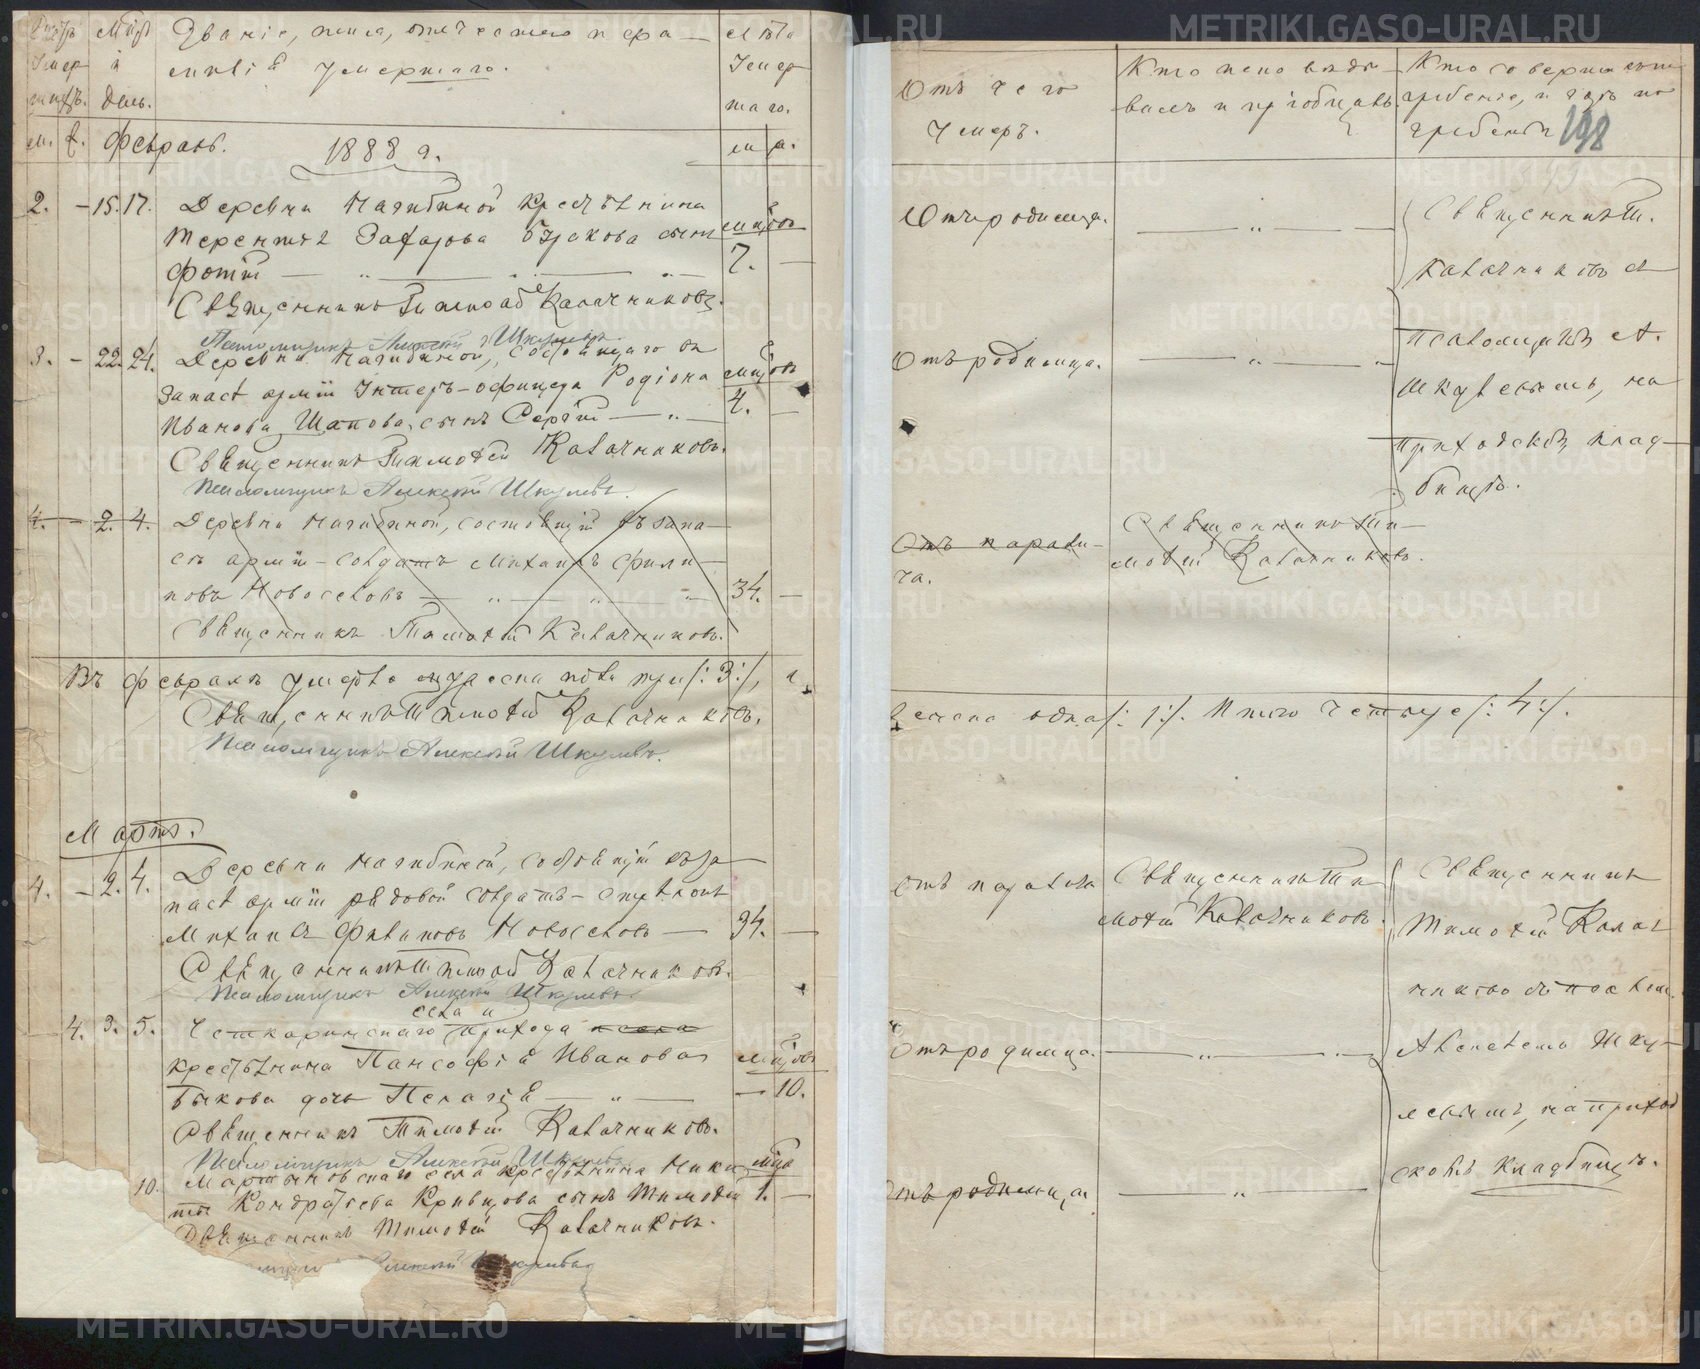 METRIKI.GASO-URAL.RU
Званіе, имя, отчество и фа-
милія умершаго.
Лѣта
Умер
шаго.
м. ж. Февраль. 1888 г.
2. - 15. 17. Деревни Мачибиной крестьянина
Терентія Захарова сынъ
Фотій
7.
Священникъ Тимоѳей Калачниковъ.
Псаломщикъ Алексѣй Шкулевъ
3. - 22. 24. Деревни Мачибиной, состоящаго въ
запасѣ арміи Унтеръ-офицера Родіона
Иванова Шапова, сынъ Сергій
4.
Священникъ Тимоѳей Калачниковъ.
Псаломщикъ Алексѣй Шкулевъ.
4. - 2. 4. Деревни Мачибиной, состоящій въ запа-
сѣ арміи - солдатъ Михаилъ Фили-
повъ Новоселовъ
34.
Священникъ Тимоѳей Калачниковъ.
Въ Февралѣ умерло мужеска пола три /: 3 :/, и
Священникъ Тимоѳей Калачниковъ.
Псаломщикъ Алексѣй Шкулевъ.
Мартъ.
4. - 2. 4. Деревни Мачибиной, состоящій въ за
пасѣ арміи рядовой солдатъ -
Михаилъ Филиповъ Новоселовъ
34.
Священникъ Тимоѳей Калачниковъ.
Псаломщикъ Алексѣй Шкулевъ.
села
- 4. 3. 5. прихода
крестьянина Пансофія Иванова
Быкова дочь Пелагія
- 10.
Священникъ Тимоѳей Калачниковъ.
Псаломщикъ Алексѣй Шкулевъ
10. Мартыновскаго села крестьянина Ники
ты Кондратьева Кривцова сынъ Тимоѳей 1. -
Священникъ Тимоѳей Калачниковъ.
Алексѣй Шкулевъ
Отъ чего
умеръ.
Кто исповѣды-
валъ и пріобщалъ.
Кто совершалъ
погребеніе, и гдѣ по
гребенъ
198
Отъ родимца.
Священникъ Т.
Калачниковъ съ
Отъ родимца.
Псаломщикомъ А.
Шкулевымъ, на
приходскомъ клад-
бищѣ.
Отъ парали-
ча.
Священникъ Ти-
моѳей Калачниковъ.
женска одна /: 1 :/. Итого четыре /: 4 :/.
Отъ паралича
Священникъ Ти
моѳей Калачниковъ.
Священникъ
Тимоѳей Калач
никовъ съ псалом.
Отъ родимца.
Алексѣемъ Шку-
левымъ, на приход
скомъ кладбищѣ.
Отъ родимца